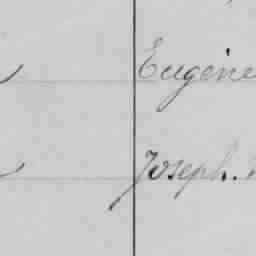 Eugène
Joseph.